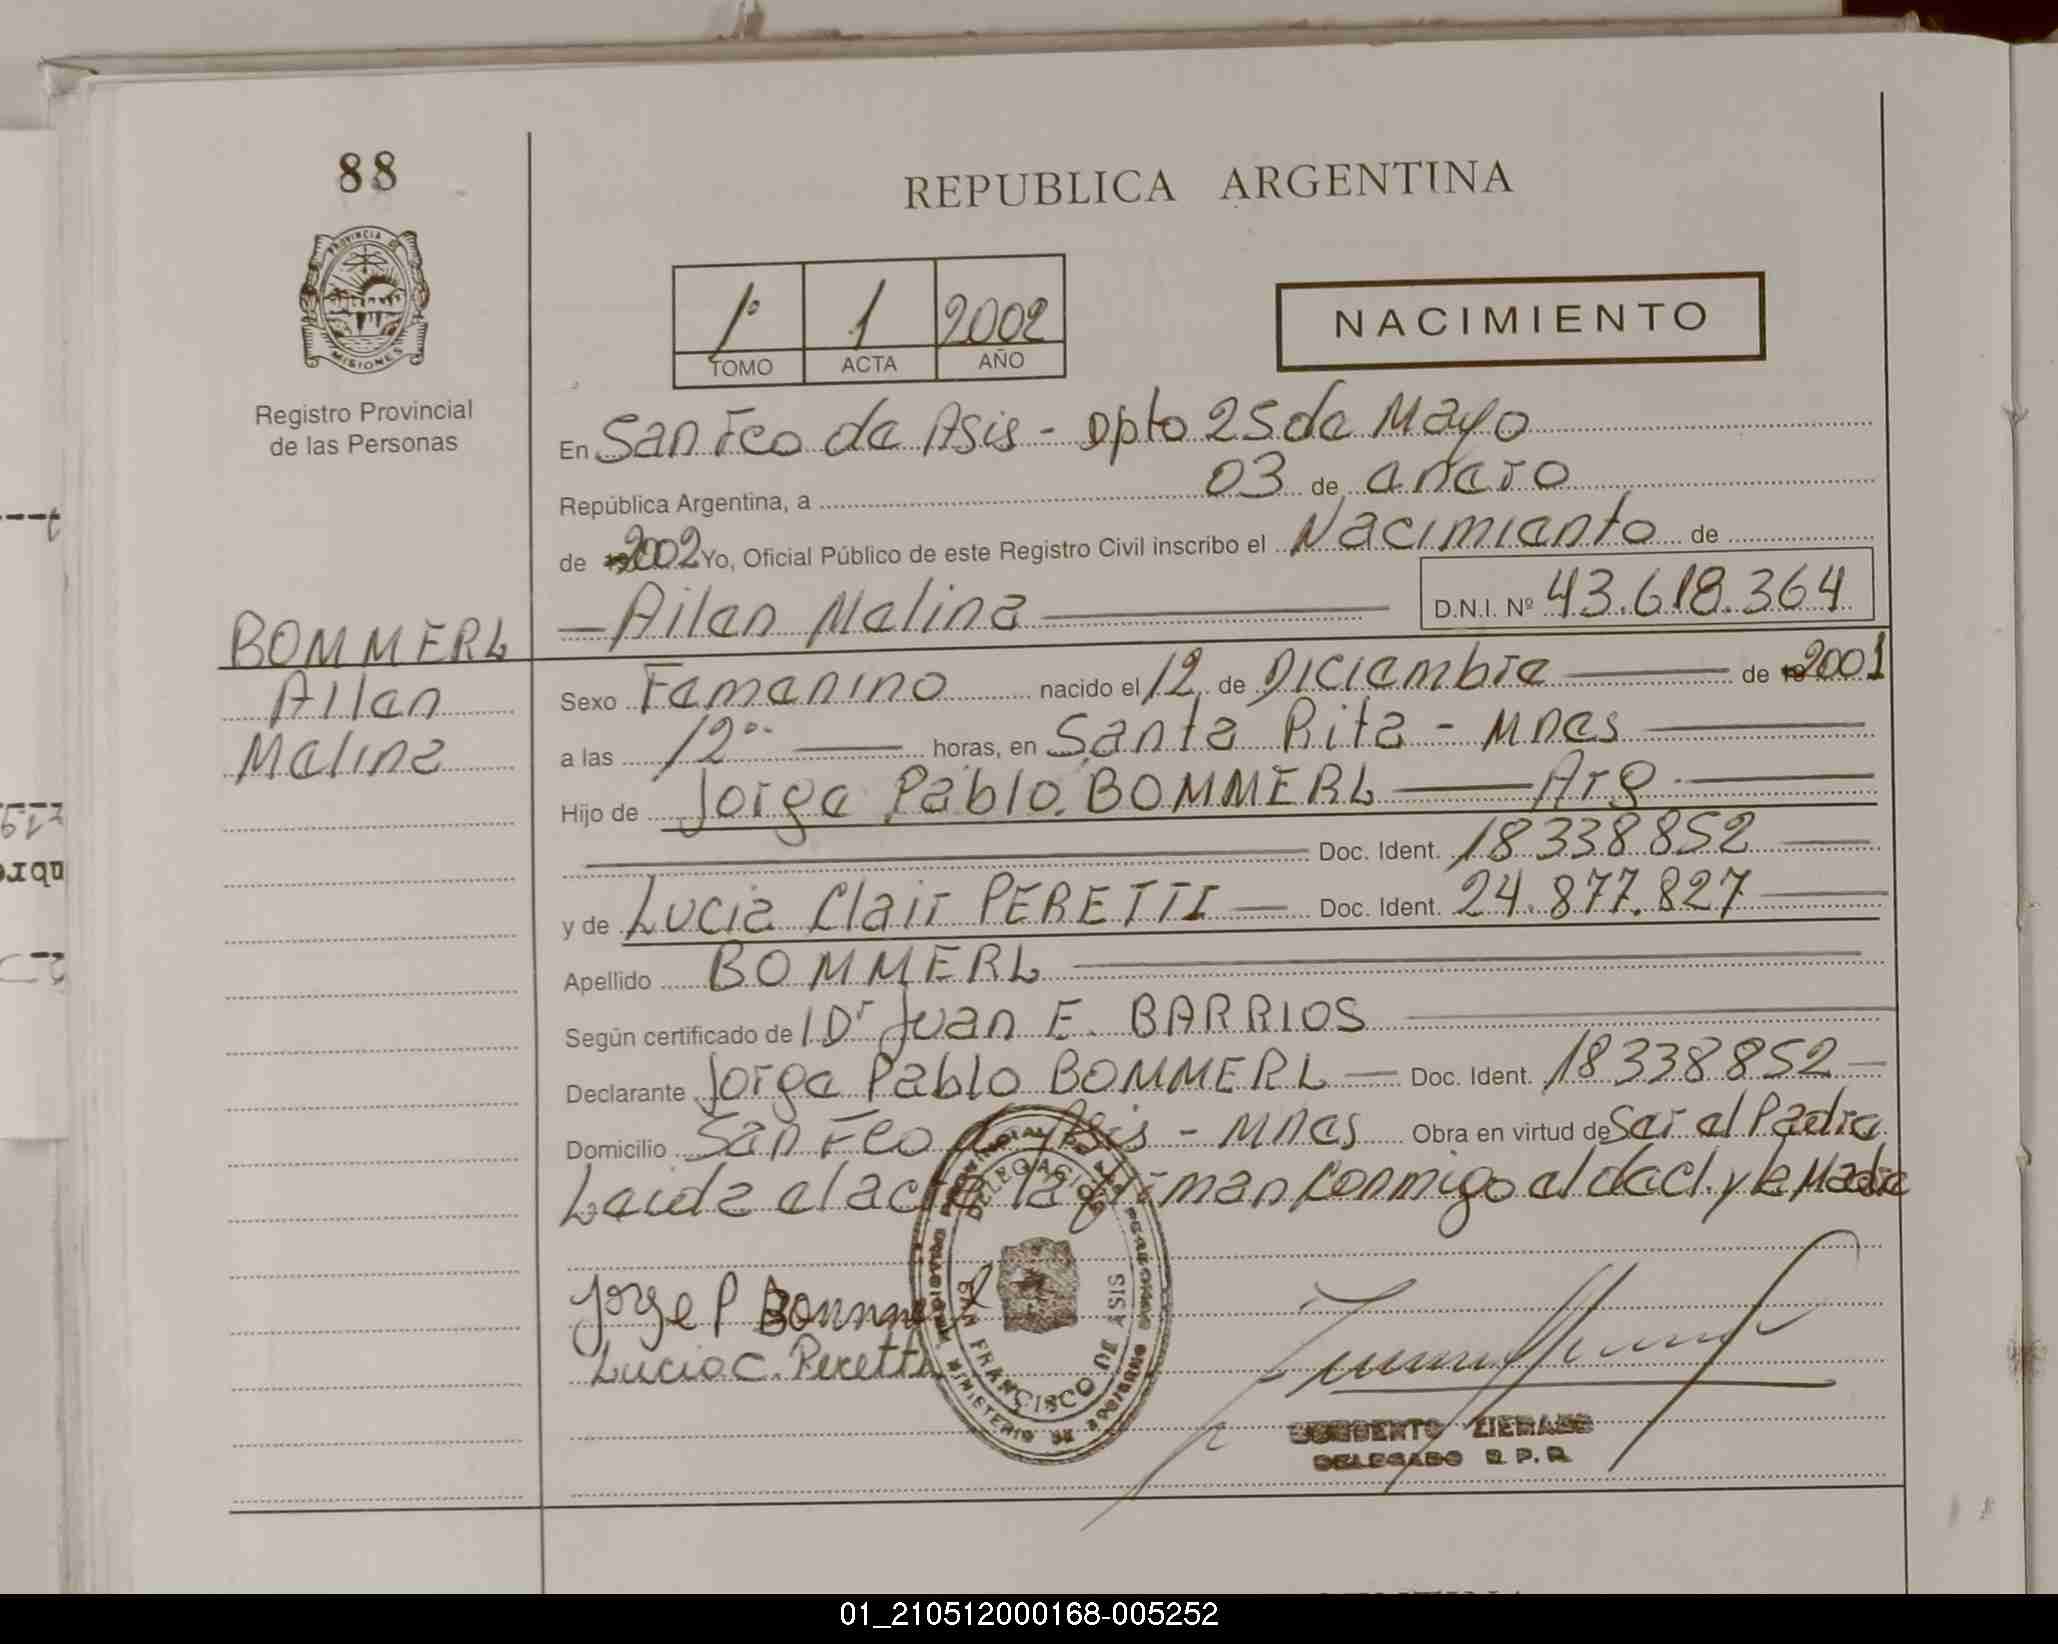 88
REPUBLICA ARGENTINA
PROVINCIA DE
MISIONES
Registro Provincial
de las Personas
1º 1 2002
TOMO ACTA AÑO
NACIMIENTO
En San Fco de Asis - Dpto 25 de Mayo
República Argentina, a 03 de enero
de 2002 Yo, Oficial Público de este Registro Civil inscribo el Nacimiento de
Ailen Melina D.N.I. Nº 43.618.364
BOMMERL
Ailen
Melina
Sexo Femenino nacido el 12 de Diciembre de 2001
a las 12 horas, en Santa Rita - Mnes
Hijo de Jorge Pablo BOMMERL Arg
Doc. Ident. 18338852
y de Lucia Clair PERETTI Doc. Ident. 24.877.827
Apellido BOMMERL
Según certificado de Dr Juan E. BARRIOS
Declarante Jorge Pablo BOMMERL Doc. Ident. 18338852
Domicilio San Fco de Asis - Mnes Obra en virtud de Ser el Padre
Leida el acta la firman conmigo el decl. y la Madre
Jorge P Bommerl
Lucia C. Peretti
DELEGACION
SAN FRANCISCO DE ASIS
DELEGADO R.P.P.
01_210512000168-005252